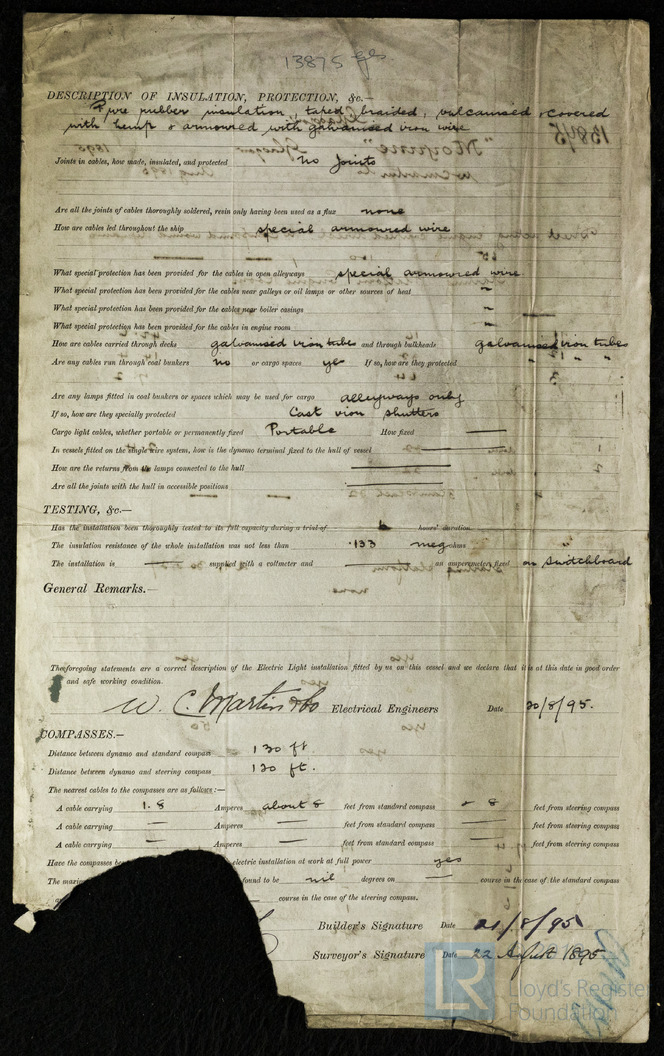 13875
DESCRIPTION OF INSULATION, PROTECTION, &c.—
Pure rubber insulation, taped, braided, vulcanised & covered
with hemp & armoured with galvanised iron wire
Joints in cables, how made, insulated, and protected no joints
Are all the joints of cables thoroughly soldered, resin only having been used as a flux none
How are cables led throughout the ship special armoured wire
What special protection has been provided for the cables in open alleyways special armoured wire
What special protection has been provided for the cables near galleys or oil lamps or other sources of heat "
What special protection has been provided for the cables near boiler casings "
What special protection has been provided for the cables in engine room "
How are cables carried through decks galvanised iron tubes and through bulkheads galvanised iron tubes
Are any cables run through coal bunkers no or cargo spaces yes If so, how are they protected " " "
Are any lamps fitted in coal bunkers or spaces which may be used for cargo alleyways only
If so, how are they specially protected Cast iron shutters
Cargo light cables, whether portable or permanently fixed Portable How fixed —
In vessels fitted on the single wire system, how is the dynamo terminal fixed to the hull of vessel —
How are the returns from the lamps connected to the hull —
Are all the joints with the hull in accessible positions —
TESTING, &c.—
Has the installation been thoroughly tested to its full capacity during a trial of 6 hours' duration
The insulation resistance of the whole installation was not less than .133 megohms
The installation is — supplied with a voltmeter and — an amperemeter, fixed on switchboard
General Remarks.—
The foregoing statements are a correct description of the Electric Light installation fitted by us on this vessel and we declare that it is at this date in good order
and safe working condition.
W. C. Martin & Co Electrical Engineers Date 20/8/95.
COMPASSES.—
Distance between dynamo and standard compass 130 ft.
Distance between dynamo and steering compass 130 ft.
The nearest cables to the compasses are as follows:—
A cable carrying 1.8 Amperes about 8 feet from standard compass 8 feet from steering compass
A cable carrying — Amperes — feet from standard compass — feet from steering compass
A cable carrying — Amperes — feet from standard compass — feet from steering compass
Have the compasses electric installation at work at full power yes
The found to be nil degrees on — course in the case of the standard compass
course in the case of the steering compass.
Builder's Signature Date 21/8/95
Surveyor's Signature Date 22 August 1895
LR Lloyd's Register
Foundation